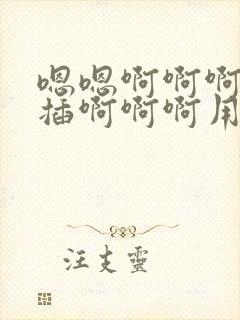 嗯嗯啊啊啊
插啊啊啊用
汪支靈